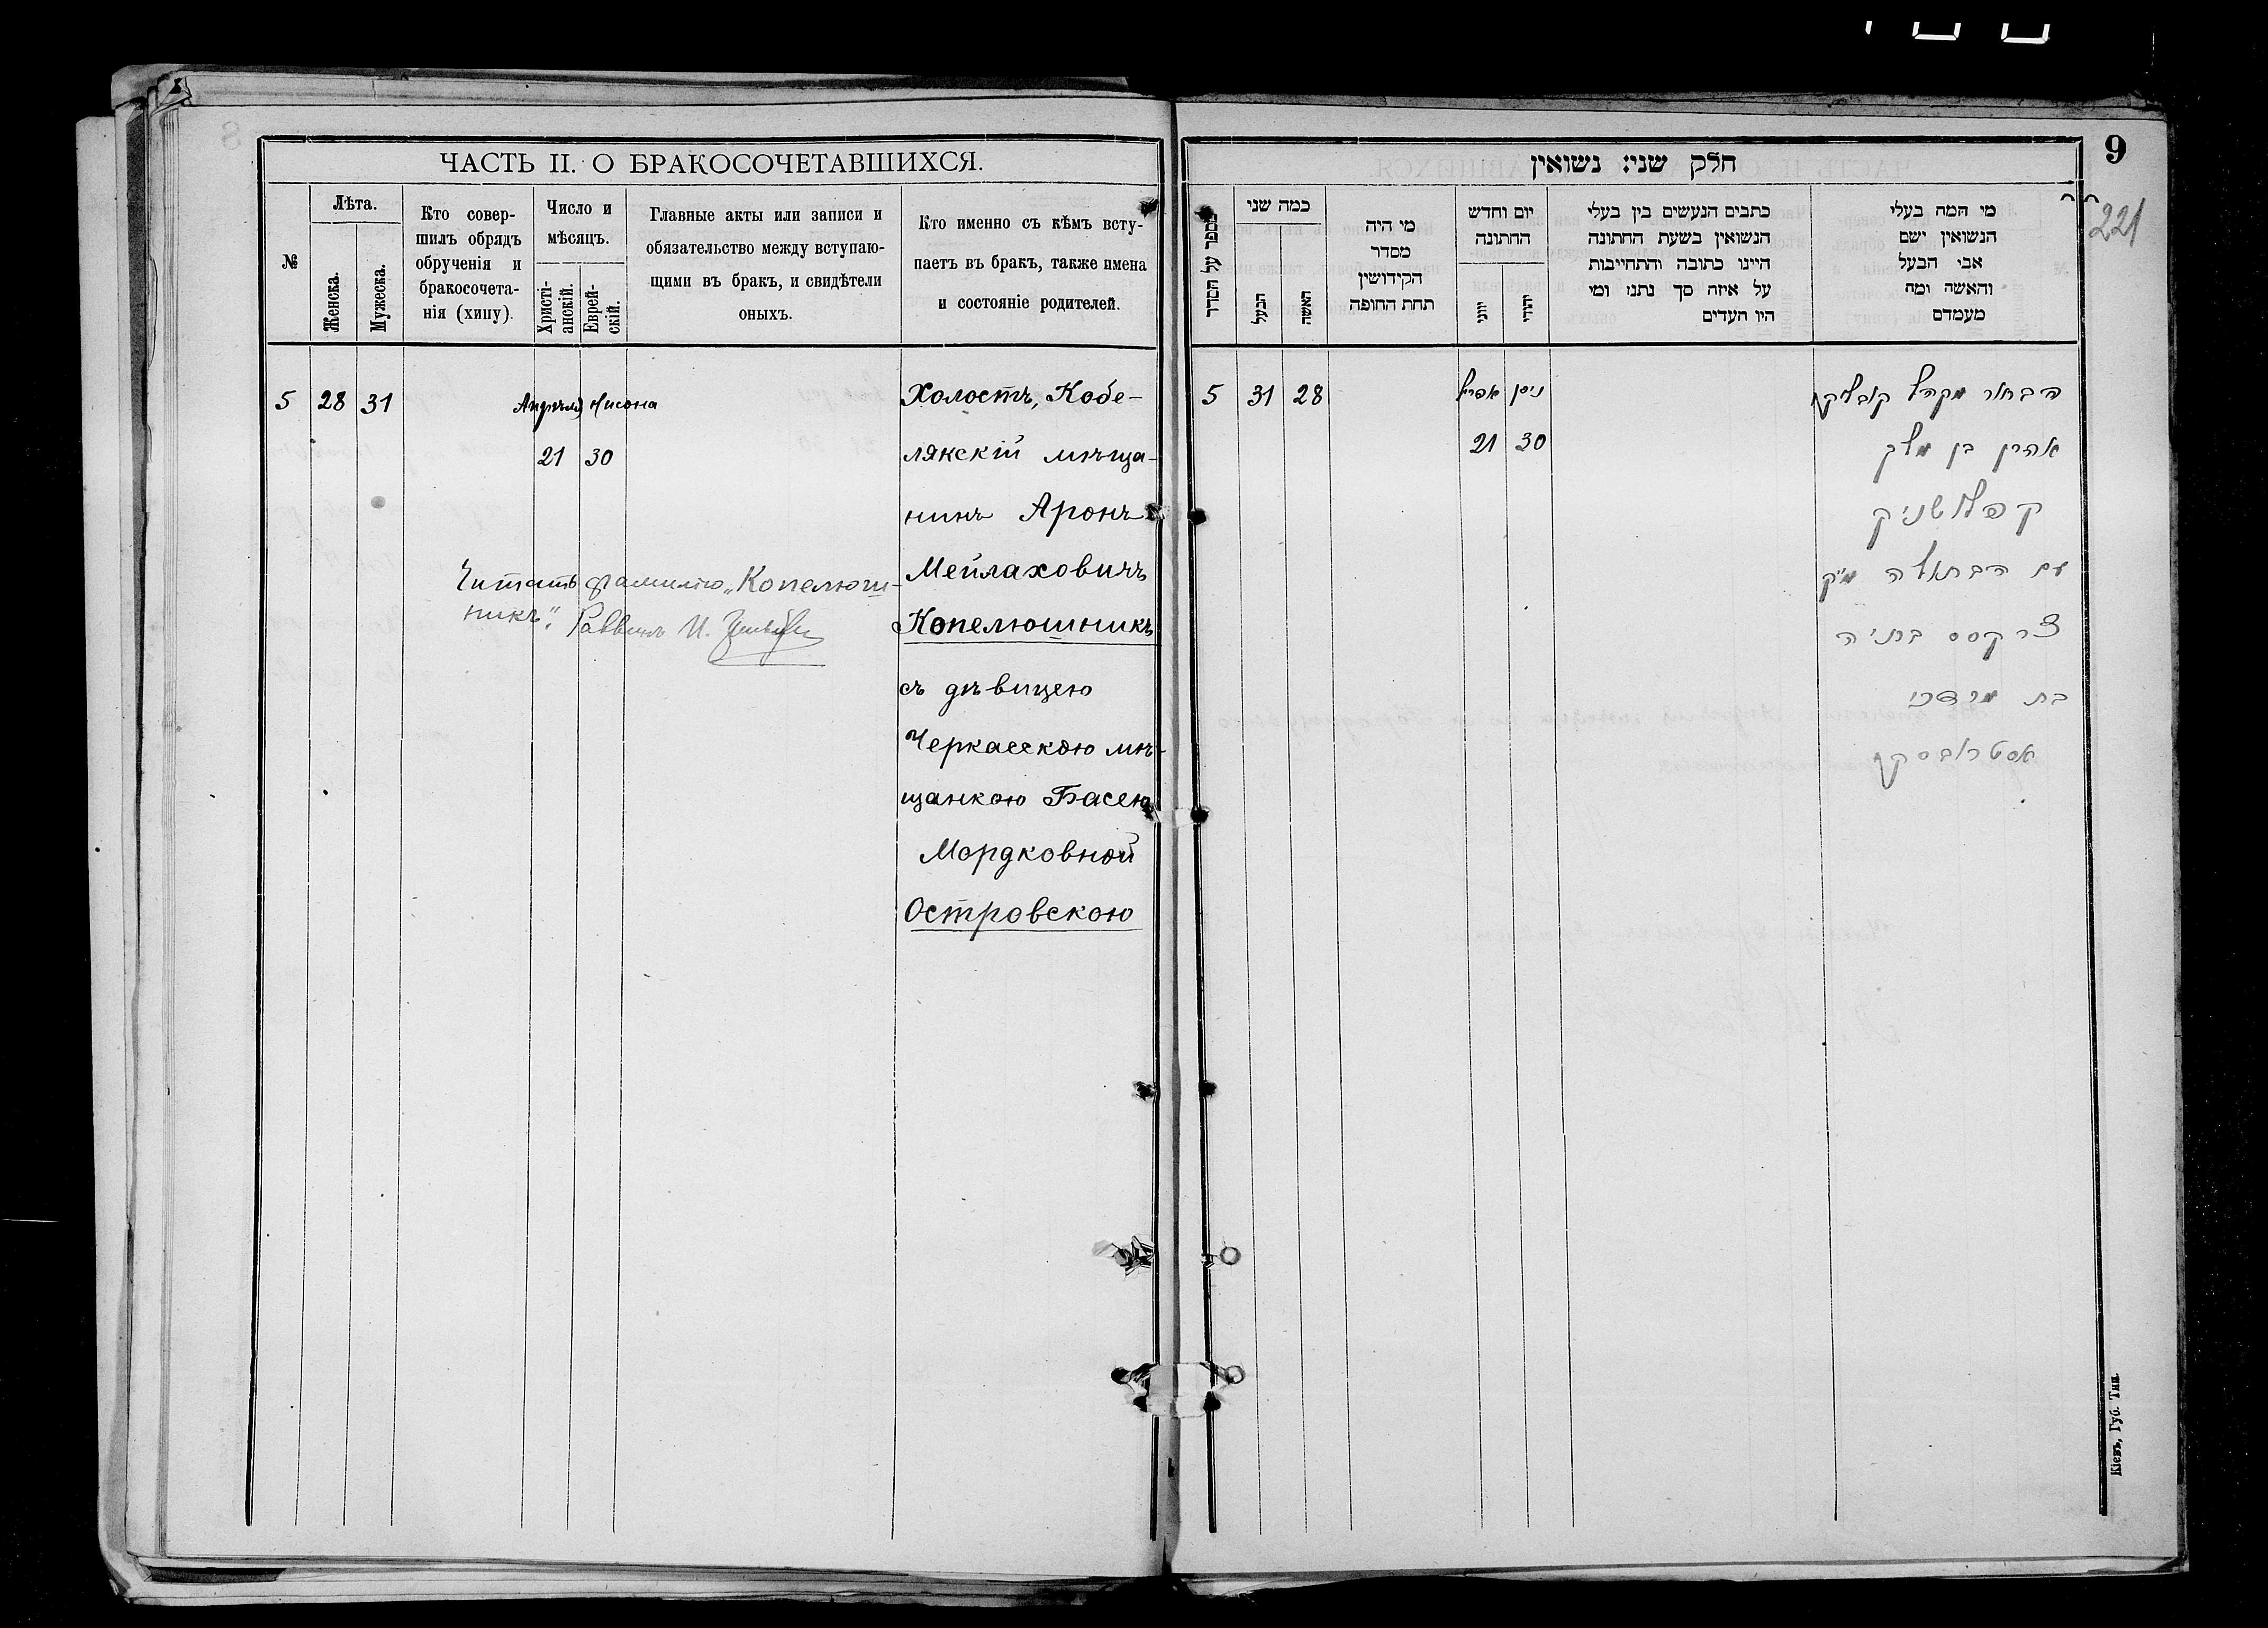 ЧАСТЬ II. О БРАКОСОЧЕТАВШИХСЯ.
№
Лѣта.
Женска.
Мужеска.
Кто совер-
шилъ обрядъ
обрученія и
бракосочета-
нія (хипу).
Число и
мѣсяцъ.
Христі-
анскій.
Еврей-
скій.
Главные акты или записи и
обязательство между вступаю-
щими въ бракъ, и свидѣтели
оныхъ.
Кто именно съ кѣмъ всту-
паетъ въ бракъ, также имена
и состояніе родителей.
5 28 31
Апрѣля Нисона
21 30
Читать фамилію „Копелюш-
никъ". Раввинъ И.
Холостъ, Кобе-
лякскій мѣща-
нинъ Аронъ
Мейлаховичъ
Копелюшникъ
съ дѣвицею
Черкасскою мѣ-
щанкою Басею
Мордковной
Островскою
9
221
חלק שני: נשואין
מספר על הסדר
כמה שני
הבעל
האשה
מי היה
מסדר
הקידושין
תחת החופה
יום וחדש
החתונה
יוני
יהודי
כתבים הנעשים בין בעלי
הנשואין בשעת החתונה
היינו כתובה והתחייבות
על איזה סך נתנו ומי
היו העדים
מי המה בעלי
הנשואין ושם
אבי הבעל
והאשה ומה
מעמדם
5 31 28
אפריל ניסן
21 30
הבחור מקהל קאבליק
אהרן בן מלך
עם הבתולה מ'ק
צרקסס בתיה
בת מרדכי
אסטראבסקי
Кіевъ, Губ. Тип.